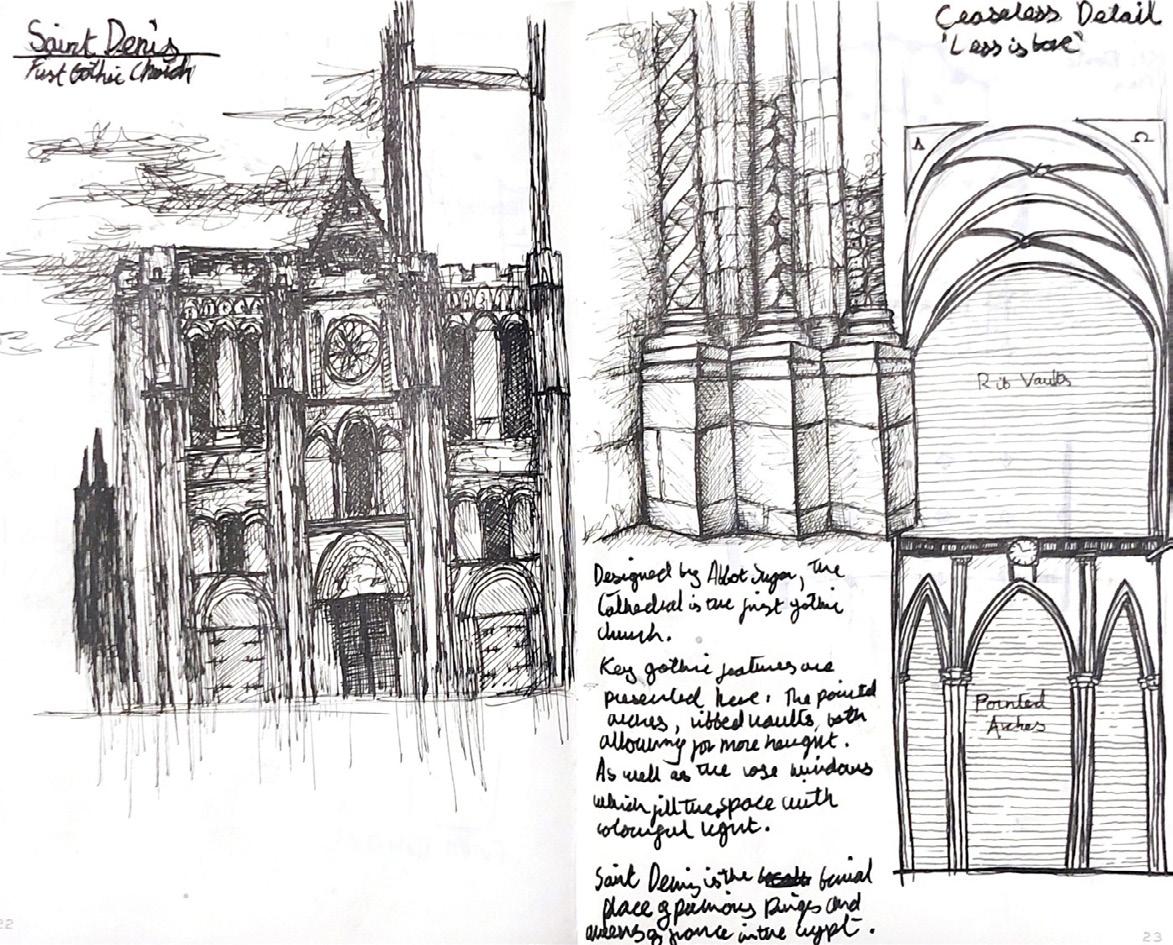 Saint Denis
First Gothic Church
Ceaseless Detail
'Less is bore'
A
Ω
Rib Vaults
Designed by Abbot Suger, the
Cathedral is the first gothic
church.
Key gothic features are
presented here. The pointed
arches, ribbed vaults, both
allowing for more height.
As well as the rose windows
which fill the space with
colourful light.
Pointed
Arches
Saint Denis is the burial
place of Kings and
queens of france in the crypt.
22
23